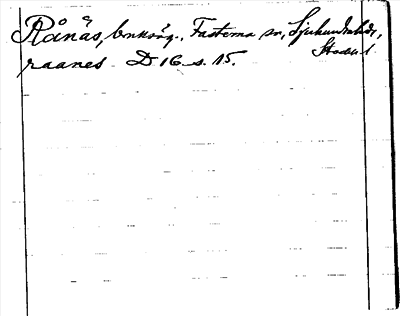 Rånås, bruksög., Fasterna sn, Sjuhundra hd,
Stockh. l.
raanes D 16 s. 15.